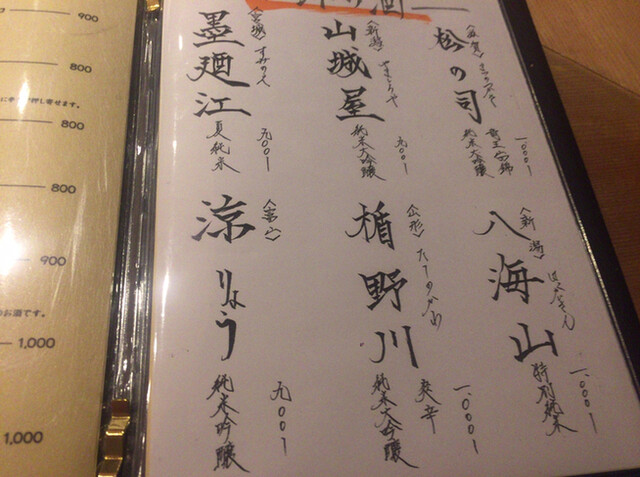 の酒
〈滋賀〉まつのつかさ
松の司
竜王山田錦
純米大吟醸
一、〇〇〇ー
〈新潟〉やましろや
山城屋
純米大吟醸
九〇〇ー
〈宮城〉すみのえ
墨廼江
夏純米
九〇〇ー
〈新潟〉はっかいさん
八海山
特別純米
一、〇〇〇ー
〈山形〉たてのかわ
楯野川
爽辛
純米大吟醸
一、〇〇〇ー
涼りょう
純米吟醸
九〇〇ー
900
800
押し寄せます。
800
800
900
のお酒です。
1,000
1,000